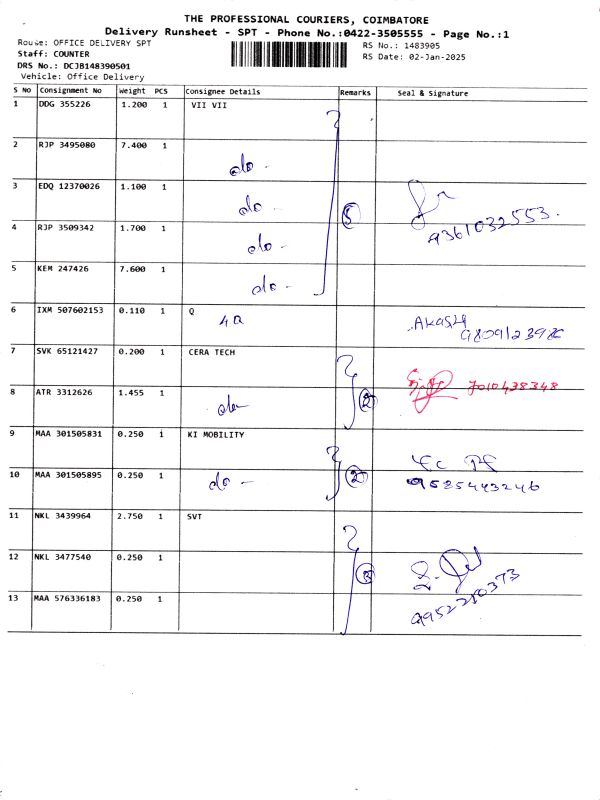 THE PROFESSIONAL COURIERS, COIMBATORE
Delivery Runsheet - SPT - Phone No.:0422-3505555 - Page No.:1
Route: OFFICE DELIVERY SPT
RS No.: 1483905
Staff: COUNTER
RS Date: 02-Jan-2025
DRS No.: DCJB148390501
Vehicle: Office Delivery
S No Consignment No Weight PCS Consignee Details Remarks Seal & Signature
1 DDG 355226 1.200 1 VII VII
2 RJP 3495080 7.400 1 do -
3 EDQ 12370026 1.100 1 do - 5
4 RJP 3509342 1.700 1 do - 9361032553.
5 KEM 247426 7.600 1 do -
6 IXM 507602153 0.110 1 Q
4Q Akash
7 SVK 65121427 0.200 1 CERA TECH
7010438348
8 ATR 3312626 1.455 1 do- 2
9 MAA 301505831 0.250 1 KI MOBILITY
10 MAA 301505895 0.250 1 do - 2
9585443246
11 NKL 3439964 2.750 1 SVT
12 NKL 3477540 0.250 1 3
13 MAA 576336183 0.250 1 9952210373